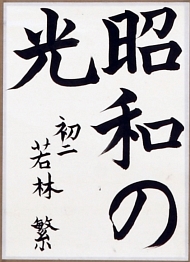 昭和の
光
初二
若林繁